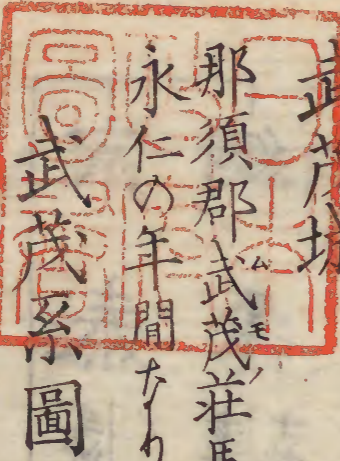 武茂城
那須郡武茂荘馬
ムモノ
永仁の年間なり
武茂系圖